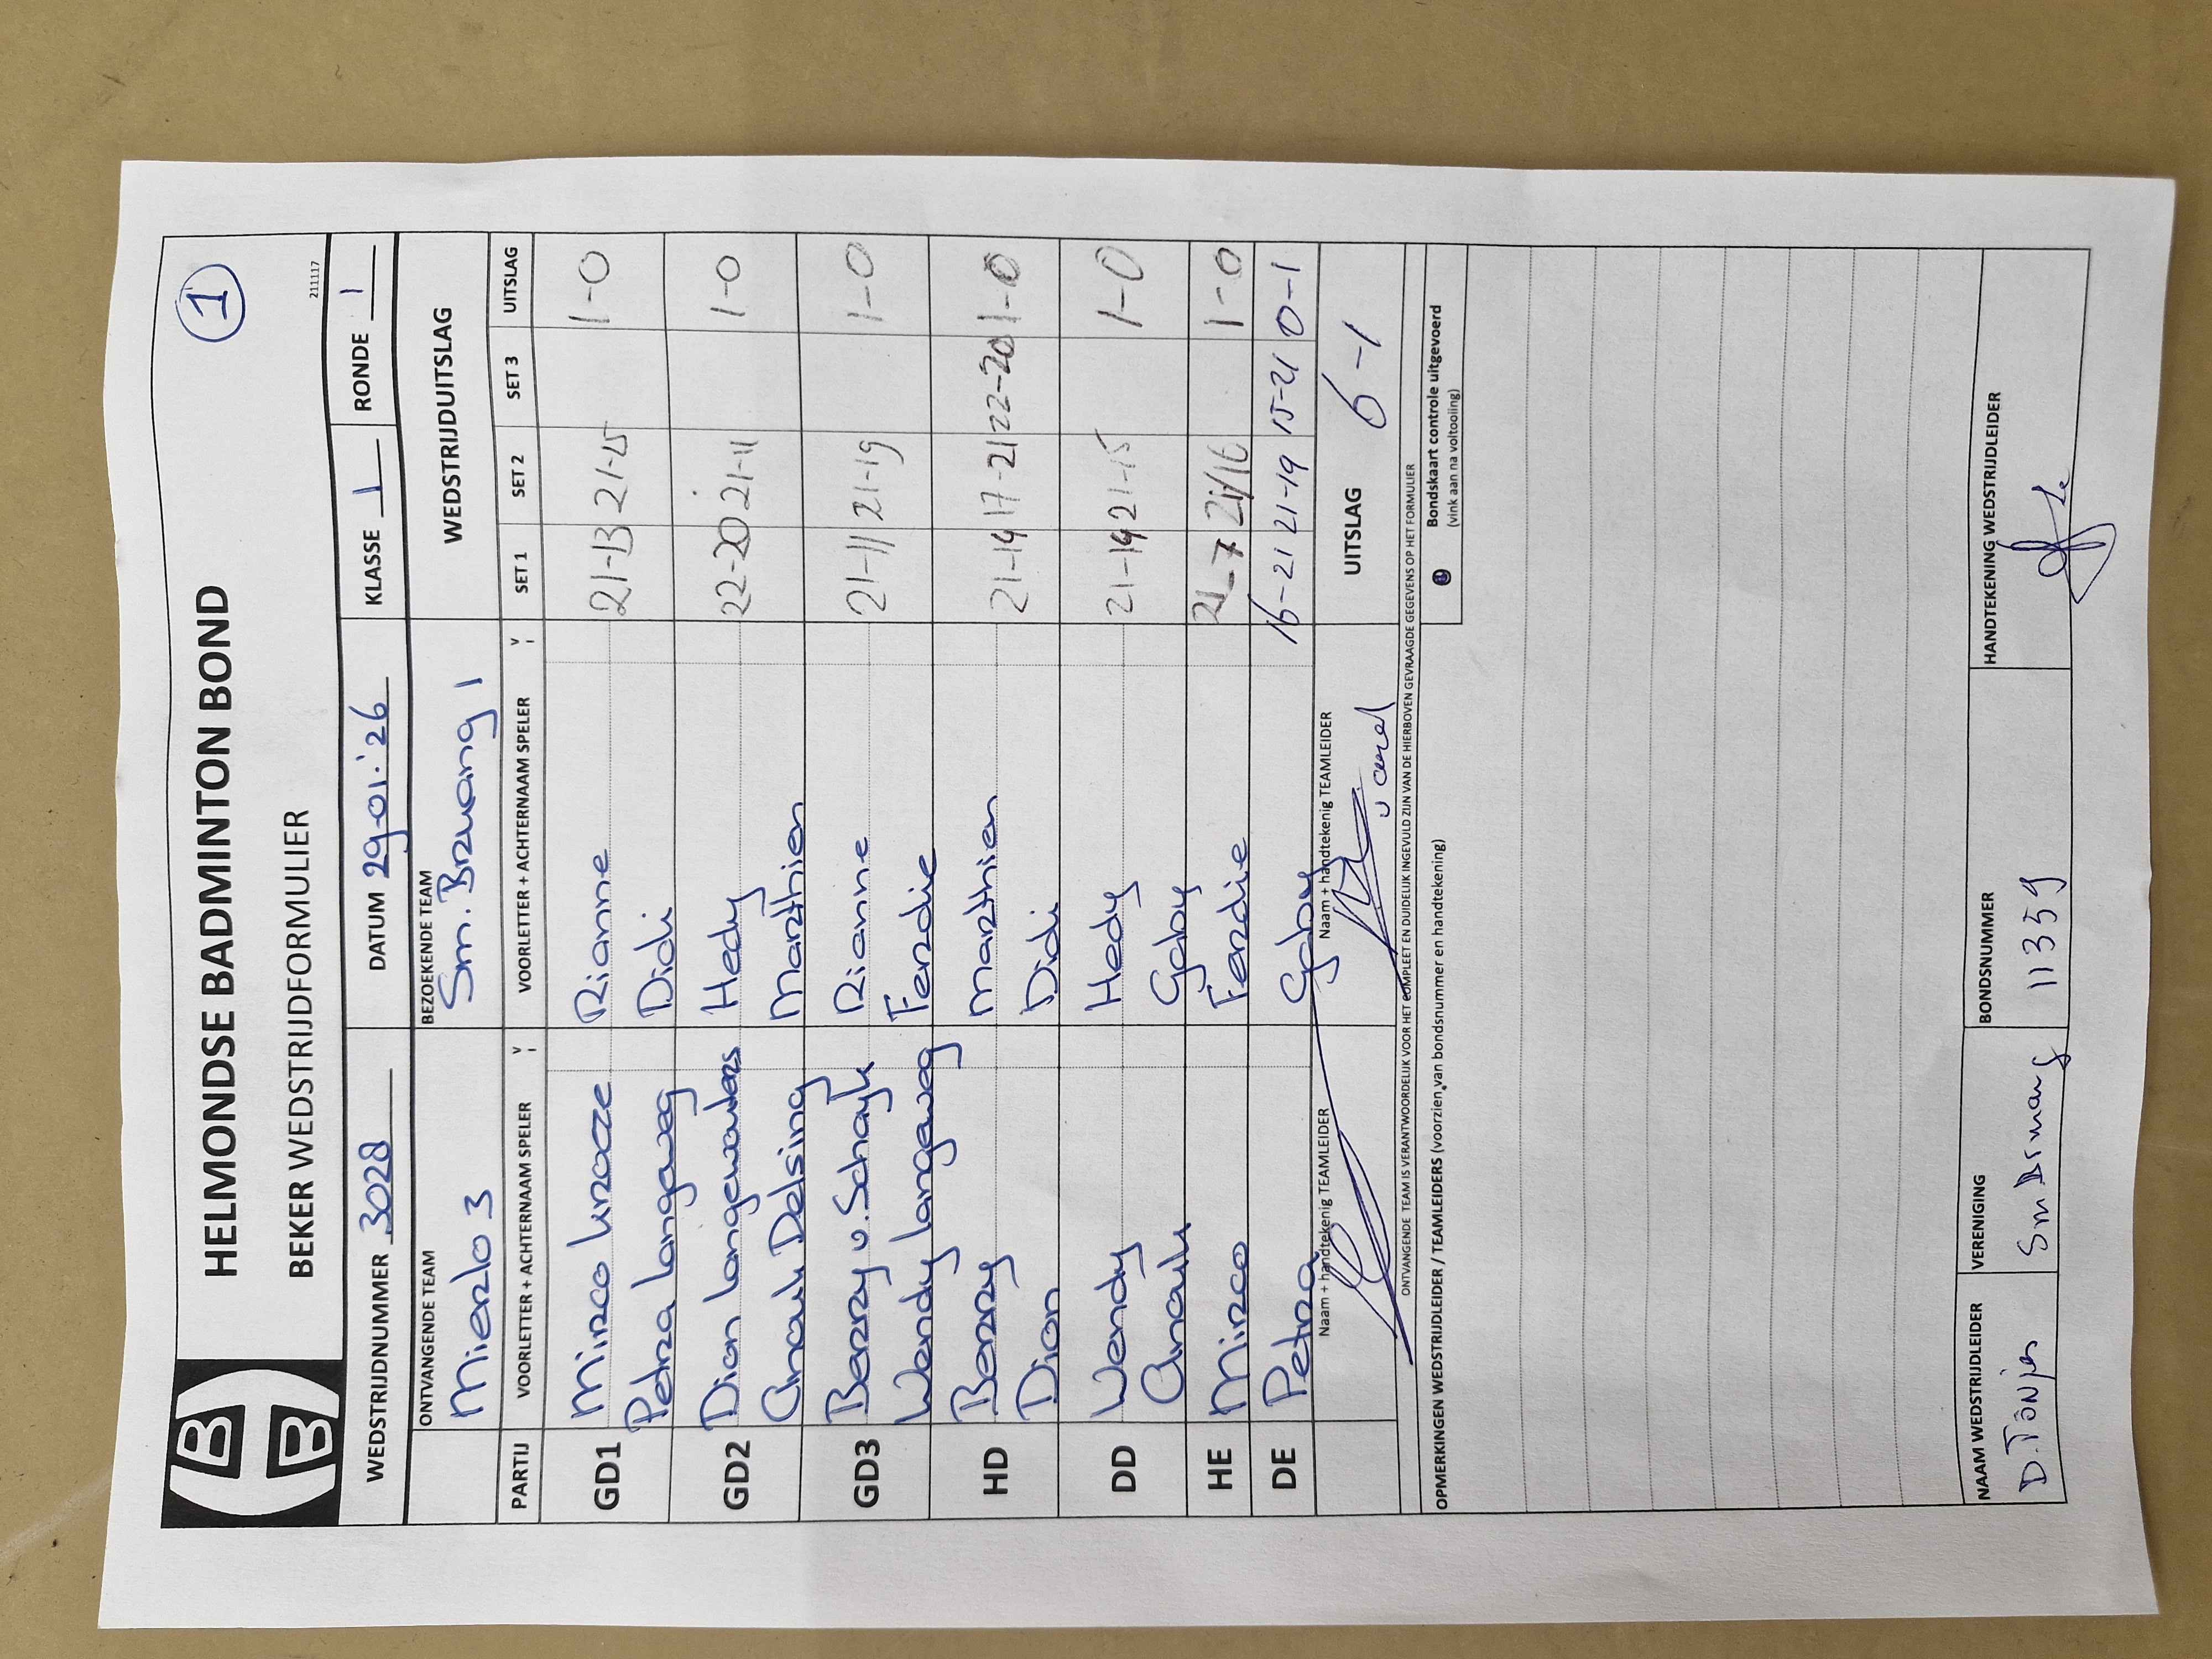 HELMONDSE BADMINTON BOND
1
BEKER WEDSTRIJDFORMULIER
211117
WEDSTRIJDNUMMER 3028 DATUM 29-01-'26 KLASSE 1 RONDE 1
ONTVANGENDE TEAM BEZOEKENDE TEAM WEDSTRIJDUITSLAG
Mierlo 3 Sm. Brwang 1
PARTIJ VOORLETTER + ACHTERNAAM SPELER V VOORLETTER + ACHTERNAAM SPELER V SET 1 SET 2 SET 3 UITSLAG
GD1 Mirco Kroeze Rianne 21-13 21-15 1-0
Petra Langeweg Didi
GD2 Dion Langewouters Hedy 22-20 21-11 1-0
Anouk Delsing Marthien
GD3 Berry v. Schayk Rianne 21-11 21-19 1-0
Wendy Langeweg Ferdie
HD Berry Marthien 21-14 17-21 22-20 1-0
Dion Didi
DD Wendy Hedy 21-14 21-15 1-0
Anouk Gaby
HE Mirco Ferdie 21-7 21/16 1-0
DE Petra Gaby 16-21 21-19 15-21 0-1
Naam + handtekenig TEAMLEIDER Naam + handtekenig TEAMLEIDER UITSLAG 6-1
ONTVANGENDE TEAM IS VERANTWOORDELIJK VOOR HET COMPLEET EN DUIDELIJK INGEVULD ZIJN VAN DE HIERBOVEN GEVRAAGDE GEGEVENS OP HET FORMULIER
OPMERKINGEN WEDSTRIJDLEIDER / TEAMLEIDERS (voorzien van bondsnummer en handtekening)
Bondskaart controle uitgevoerd
(vink aan na voltooling)
NAAM WEDSTRIJDLEIDER VERENIGING BONDSNUMMER HANDTEKENING WEDSTRIJDLEIDER
D. Tönjes 11359